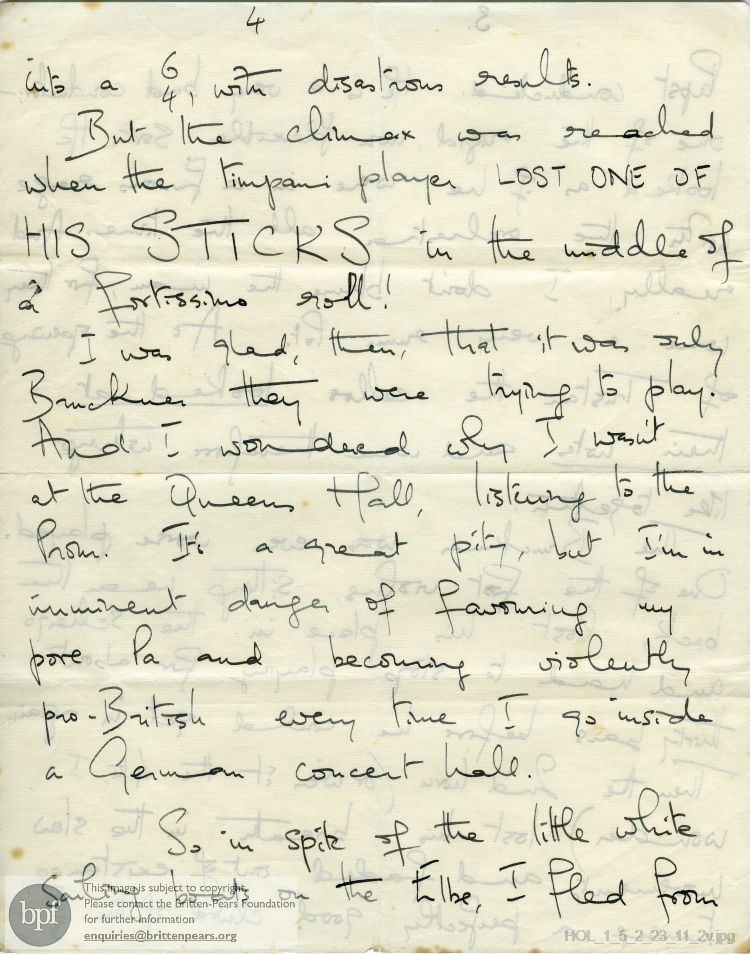 4
into a 6/4, with disastrous results.
But the climax was reached
when the timpani player LOST ONE OF
HIS STICKS in the middle of
a fortissimo roll!
I was glad, then, that it was only
Bruckner they were trying to play.
And I wondered why I wasn't
at the Queens Hall, listening to the
Prom. It's a great pity, but I'm in
imminent danger of favouring my
pore Pa and becoming violently
pro-British every time I go inside
a German concert hall.
So in spite of the little white
sailing boats on the Elbe, I fled from
bpf
This image is subject to copyright.
Please contact the Britten-Pears Foundation
for further information
enquiries@brittenpears.org
HOL_1_5_2_23_11_2v.jpg